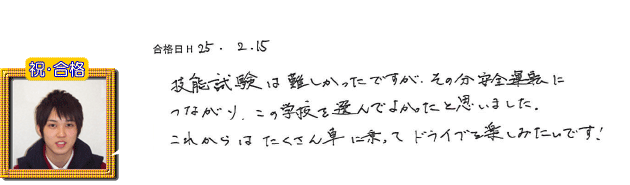 祝・合格
合格日 H 25. 2.15
技能試験は難しかったですが、その分安全運転に
つながり、この学校を選んでよかったと思いました。
これからはたくさん車に乗ってドライブを楽しみたいです!